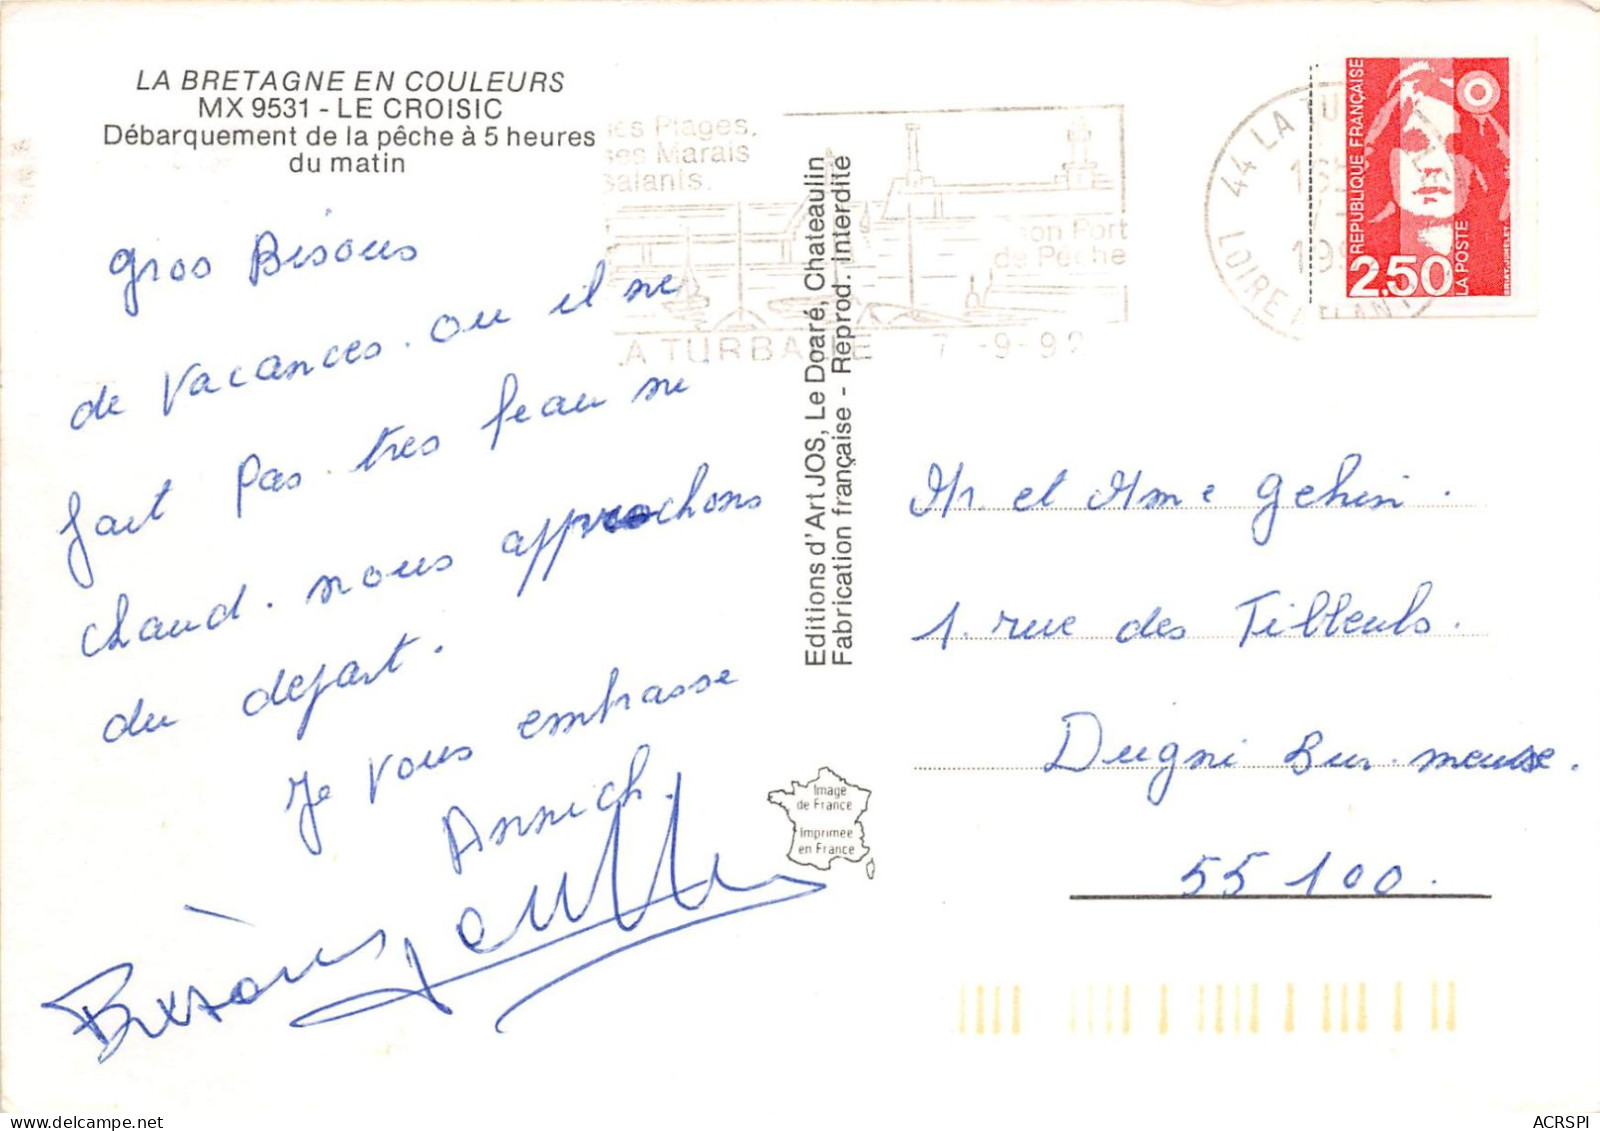 LA BRETAGNE EN COULEURS
MX 9531 - LE CROISIC
Débarquement de la pêche à 5 heures
du matin
gros Bisous
de Vacances. ou il ne
fait pas. tres beau ni
chaud. nous approchons
du depart.
Je vous embrasse
Annick.
Bisous
Editions d'Art JOS, Le Doaré, Chateaulin
Fabrication française - Reprod. interdite
Plages,
ses Marais
salants.
son Port
de Pêche
LA TURBALLE 7 -9-92
44 LA TU
LOIRE ATLANT
REPUBLIQUE FRANÇAISE
2,50
LA POSTE
BRIAT-JUMELET
Mr et Mme Gehin.
1. rue des Tilleuls.
Dugni sur. meuse.
55100.
Image
de France
Imprimée
en France
ACRSPI